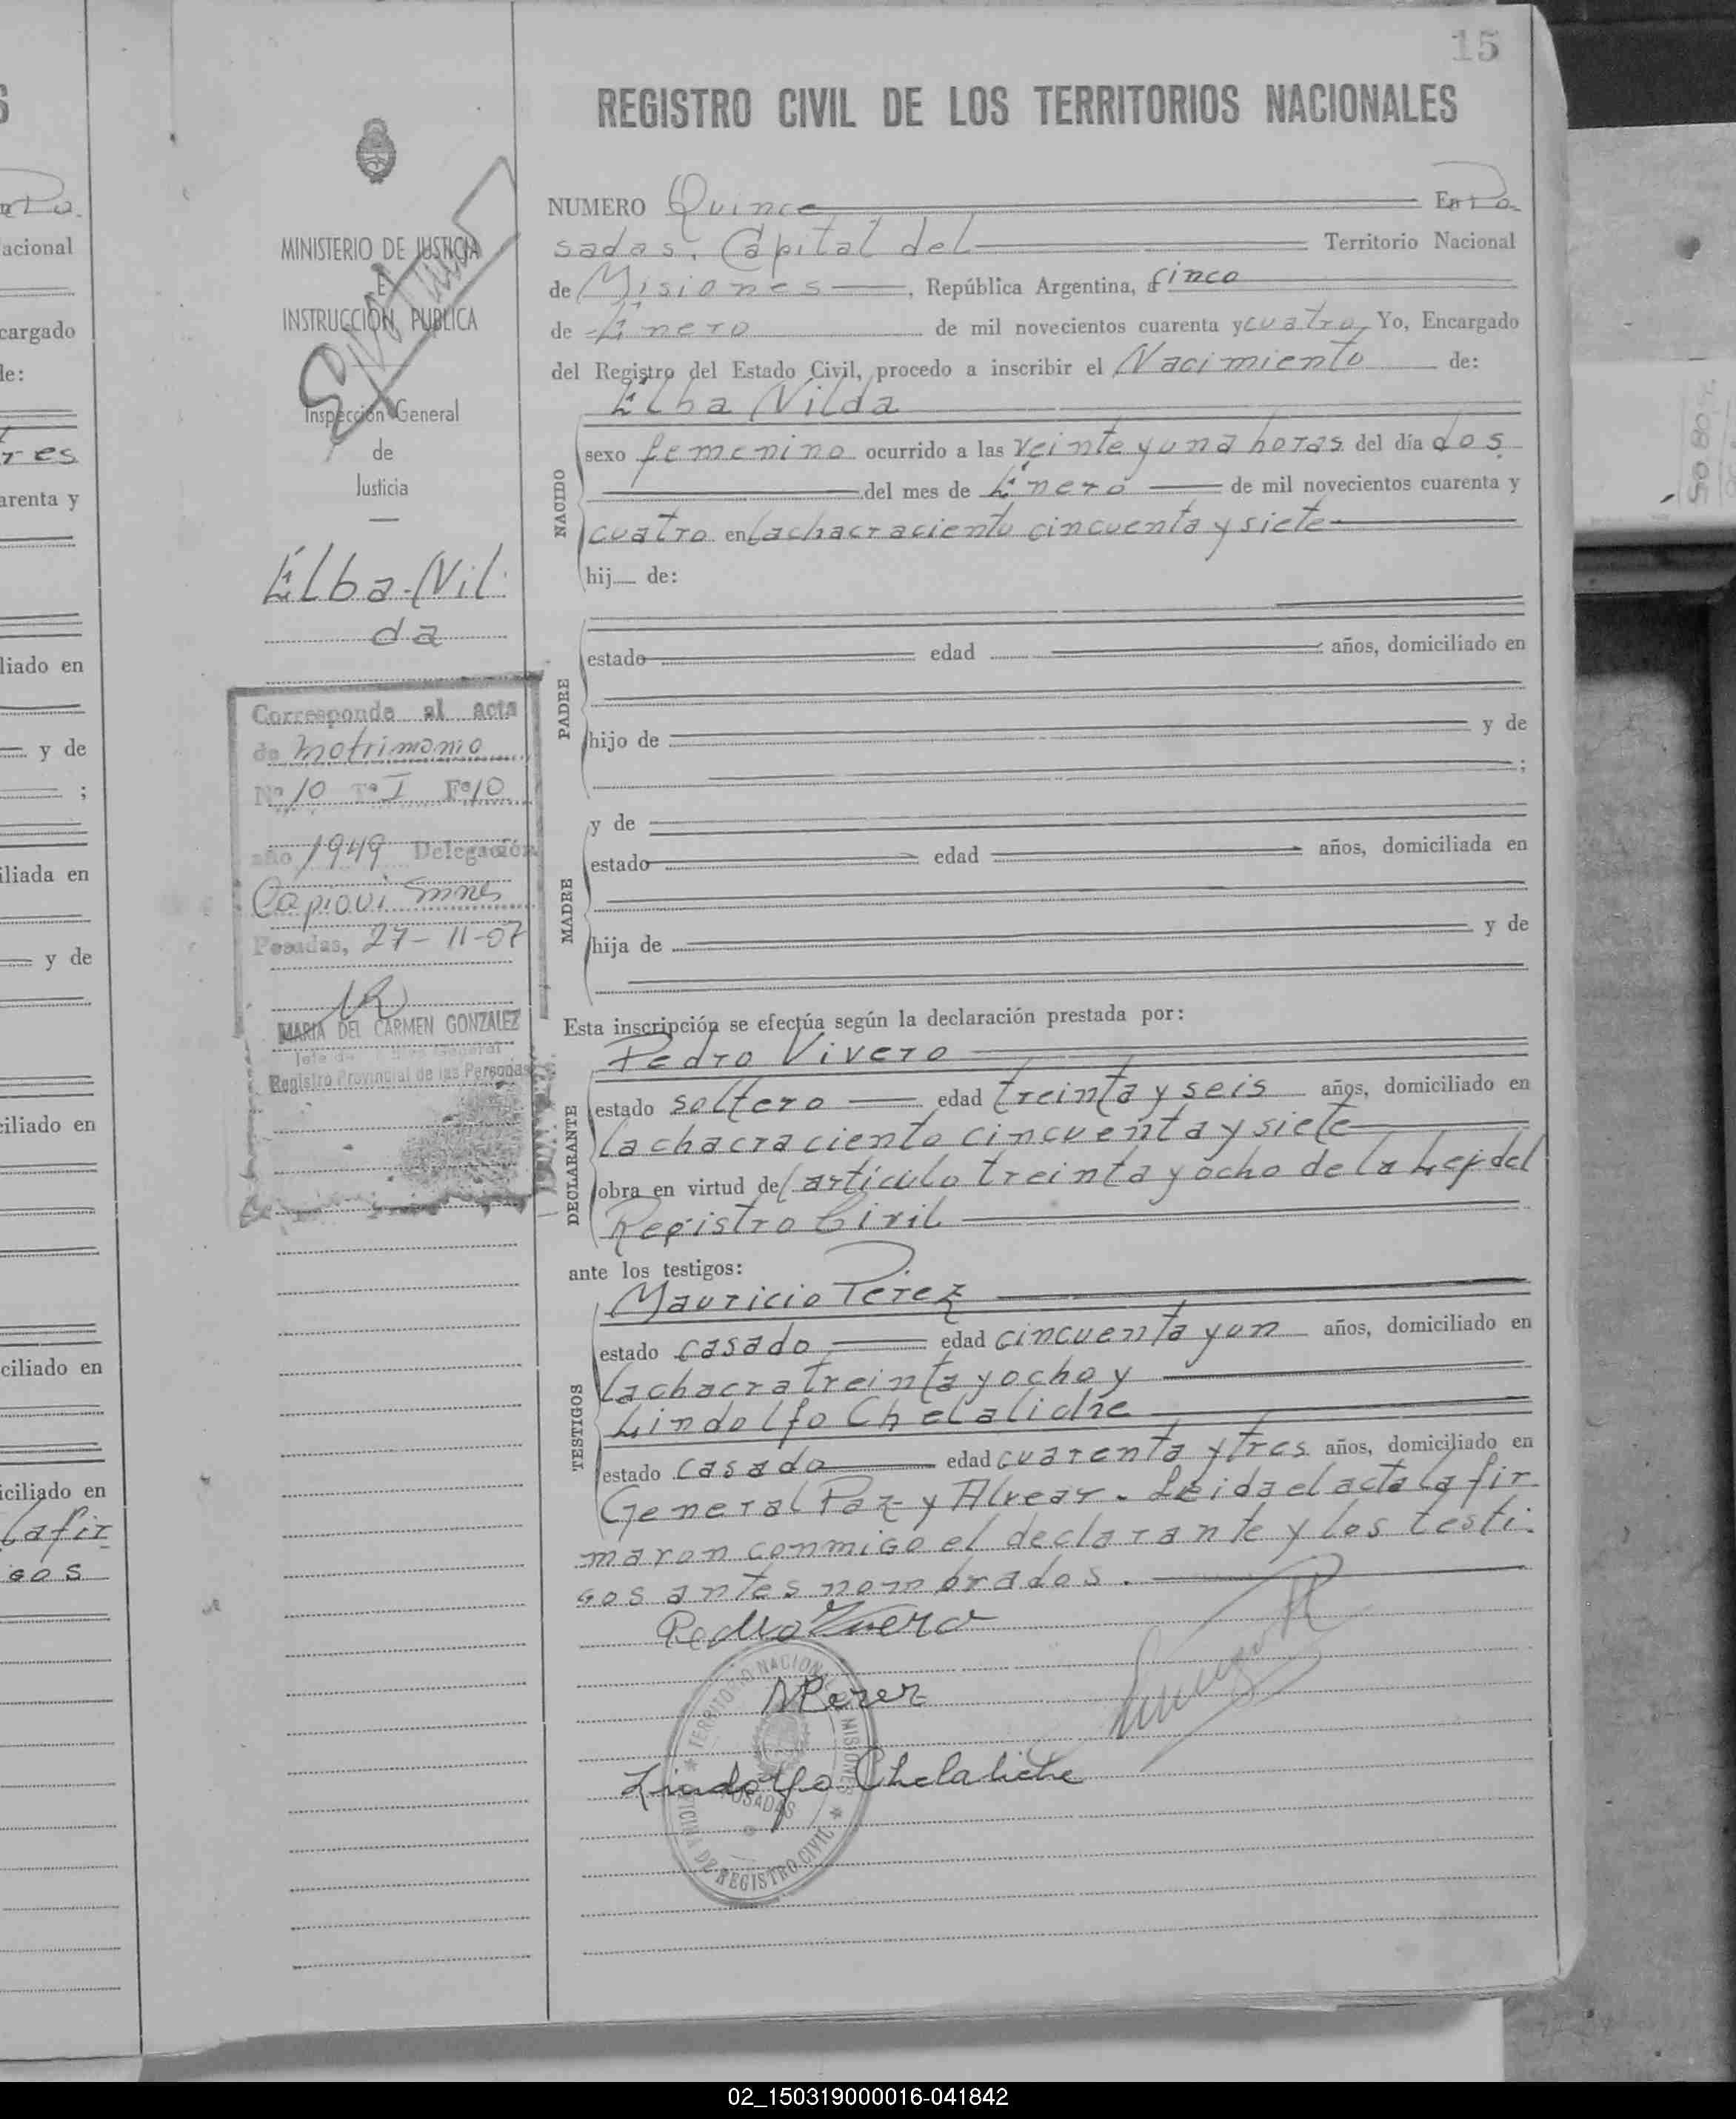 15
REGISTRO CIVIL DE LOS TERRITORIOS NACIONALES
MINISTERIO DE JUSTICIA
E
INSTRUCCIÓN PUBLICA
Inspección General
de
Justicia
Elba Nil
da
Corresponde al acta
de Matrimonio
Nº 10 Tº I Fº 10
año 1949 Delegación
Capiovi Smnes
Posadas, 27-11-07
MARIA DEL CARMEN GONZALEZ
Jefe de General
Registro Provincial de las Personas
NUMERO Quince En Po
sadas, Capital del Territorio Nacional
de Misiones, República Argentina, a cinco
de Enero de mil novecientos cuarenta y cuatro Yo, Encargado
del Registro del Estado Civil, procedo a inscribir el Nacimiento de:
NACIDO
Elba Nilda
sexo femenino ocurrido a las veinte y una horas del día dos
del mes de Enero de mil novecientos cuarenta y
cuatro en la chacra ciento cincuenta y siete
hij de:
PADRE
estado edad años, domiciliado en
hijo de y de
;
y de
MADRE
estado edad años, domiciliada en
hija de y de
Esta inscripción se efectúa según la declaración prestada por:
DECLARANTE
Pedro Vivero
estado soltero edad treinta y seis años, domiciliado en
la chacra ciento cincuenta y siete
obra en virtud del artículo treinta y ocho de la Ley del
Registro Civil
ante los testigos:
TESTIGOS
Mauricio Perez
estado casado edad cincuenta y un años, domiciliado en
la chacra treinta y ocho y
Lindolfo Chelaliche
estado casado edad cuarenta y tres años, domiciliado en
General Paz y Alvear. Leida el acta la fir
maron conmigo el declarante y los testi
gos antes nombrados.
Pedro Vivero
MPerez
Lindolfo Chelaliche
TERRITORIO NACIONAL DE MISIONES
POSADAS
OFICINA DE REGISTRO CIVIL
02_150319000016-041842